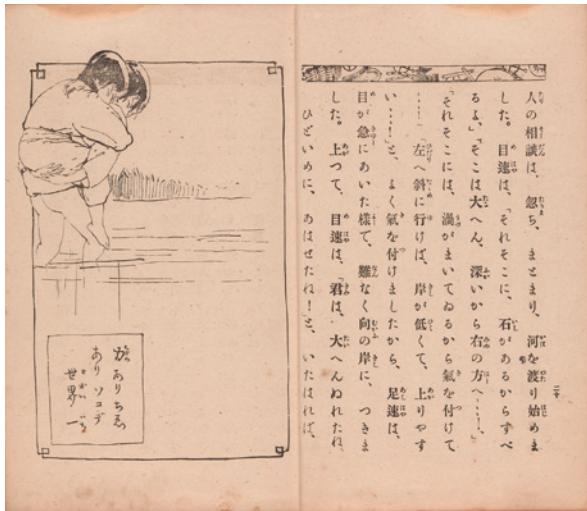 人の相談は、忽ち、まとまり、河を渡り始めま
した。目速は、「それそこに、石があるからすべ
るよ、」「そこは大へん、深いから右の方へ‥‥、」
「それそこには、渦がまいてゐるから氣を付けて
‥‥！」「左へ斜に行けば、岸が低くて、上りやす
い‥‥！」と、よく氣を付けましたから、足速は、
目が急にあいた樣で、難なく向の岸に、つきま
した。上つて、目速は、「君は、大へんぬれたね、
ひどいめに、あはせたね！」と、いたはれば、
力ありちゑ
あり ソコデ
世界一